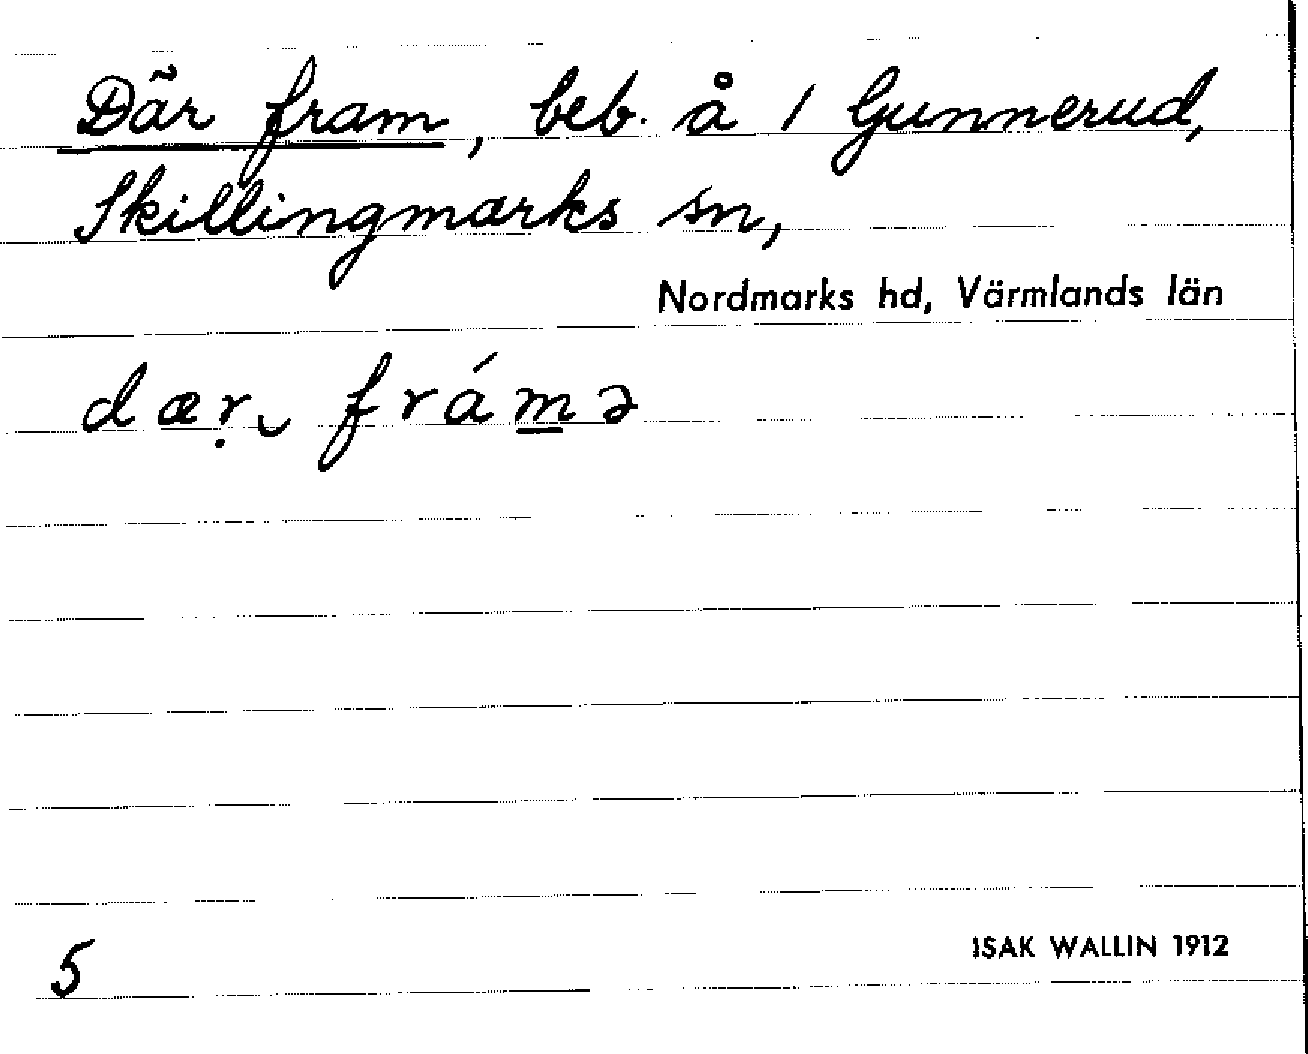 Där fram, beb. å / Gunnerud,
Skillingmarks sn,
Nordmarks hd, Värmlands län
dæṛ⌣ frám̲ə
5
ISAK WALLIN 1912